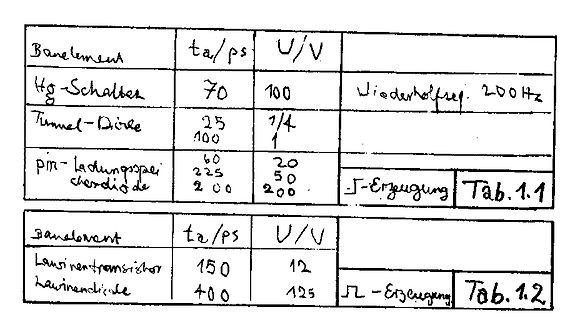 Bauelement ta/ps U/V
Hg-Schalter 70 100 Wiederholfreq. 200Hz
Tunnel-Diode 25 1/4
100 1
pin-Ladungsspei 60 20
cherdiode 225 50
200 200
⎍-Erzeugung Tab. 1.1
Bauelement ta/ps U/V
Lawinentransistor 150 12
Lawinendiode 400 125
⎍-Erzeugung Tab. 1.2